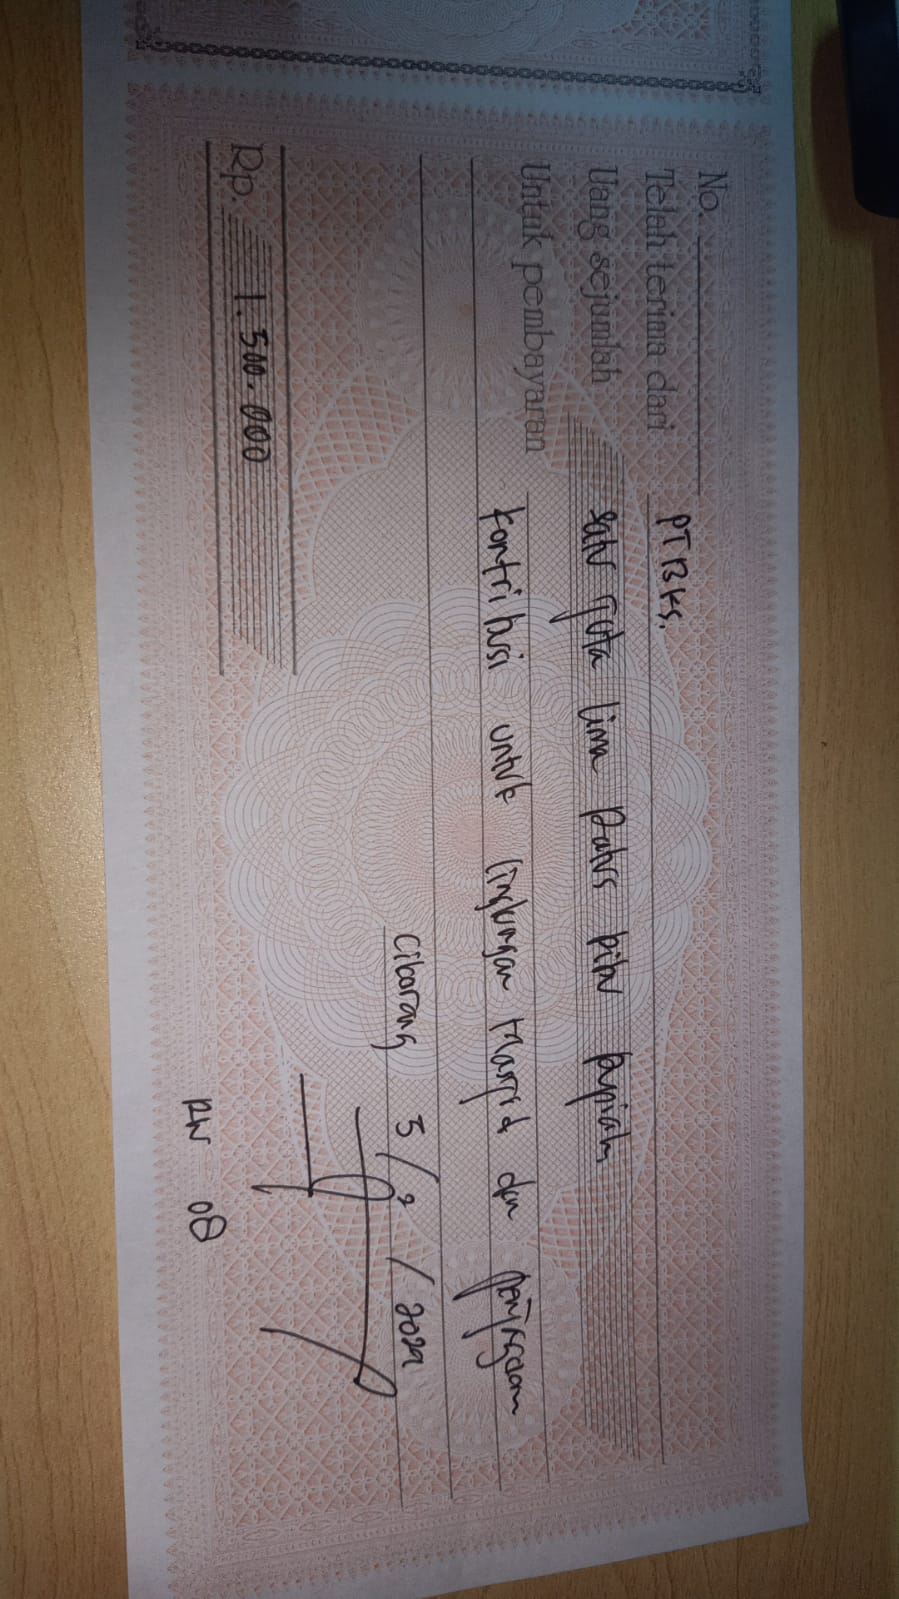 No.
Telah terima dari PT BKS.
Uang sejumlah satu juta lima Ratus Ribu Rupiah
Untuk pembayaran kontribusi untuk lingkungan Masjid dan penjagaan
Cibarang 3/2/2029
Rp. 1.500.000
RW 08